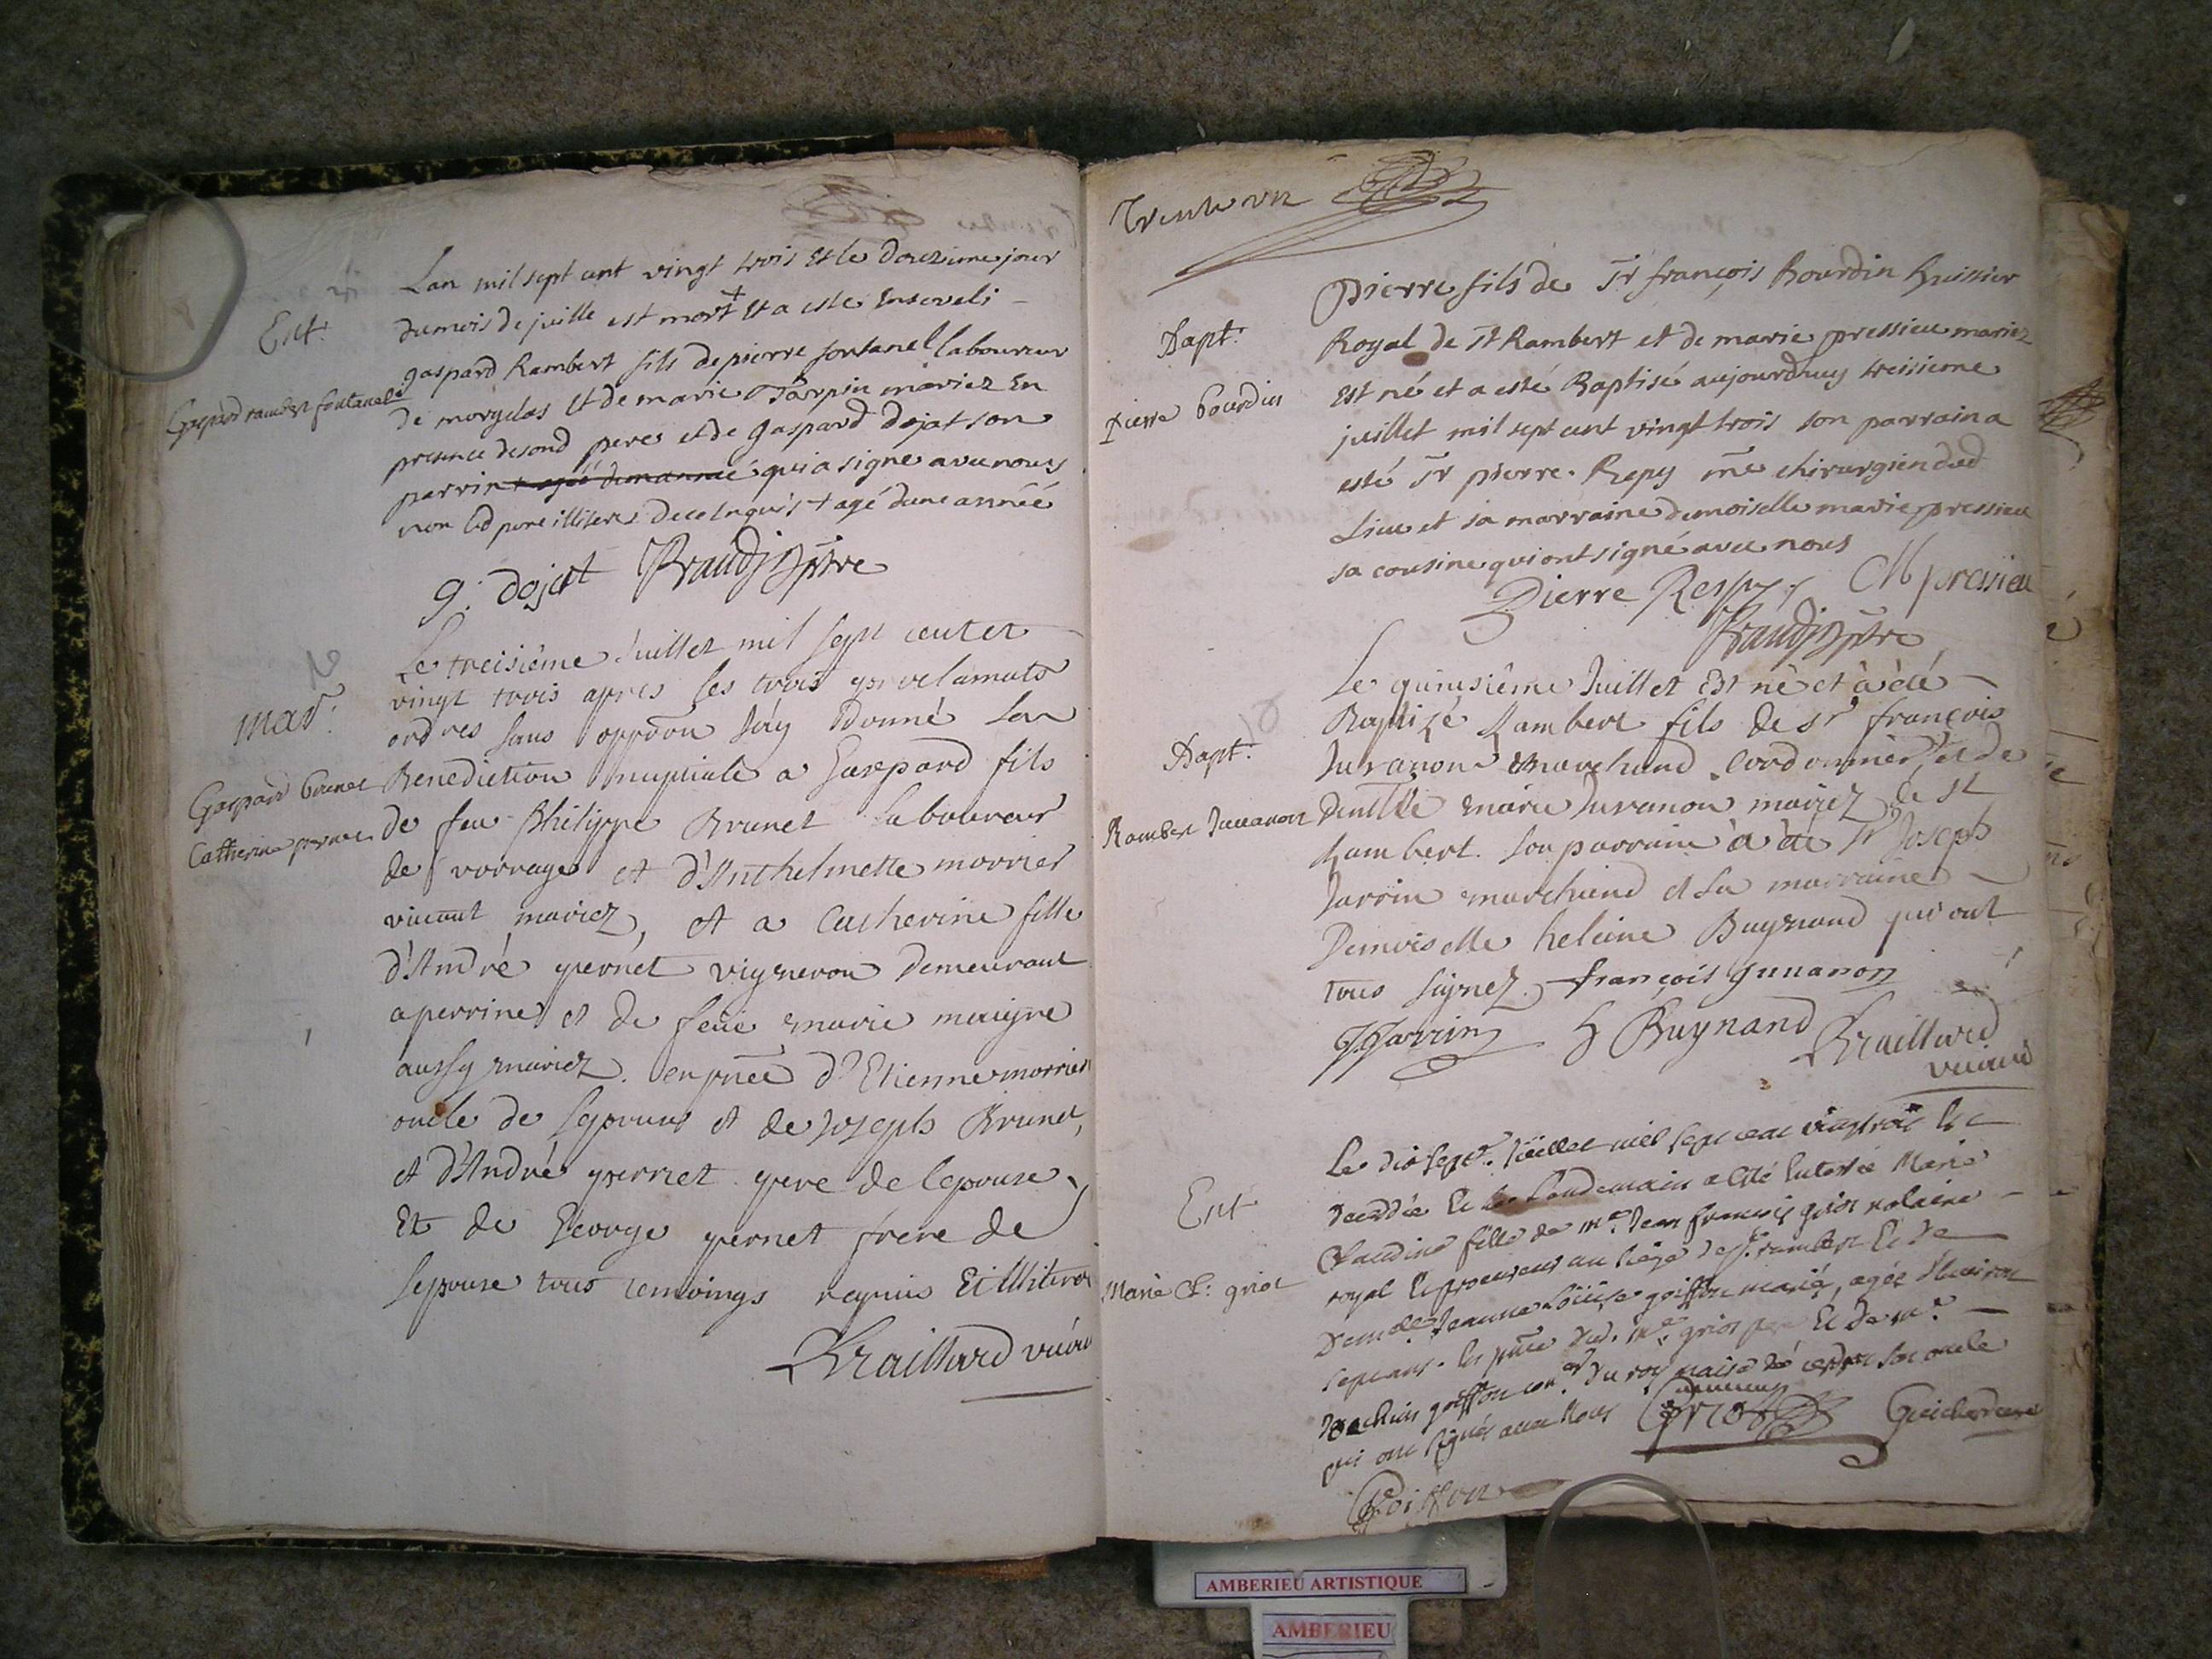 Ent.
Gaspard rambert fontanel
Lan mil sept cent vingt trois et le douzieme jour
du mois de juille est mort + et a este enseveli -
gaspard Rambert fils de pierre fontanel laboureur
de morgelas et de marie Tarpin mariez En
presence desond pere et de gaspard dojat son
parrin + agéé dunannéé qui a signe avec nous
non led pere illiteres de ce enquis + agé dune annéé
g. dojat Braudj ptre
mar.
Gaspard brunet
Catherine pernet
Le treisiéme Juillet mil sept cent et
vingt trois apres les trois proclamats
ordres sans oppoōn J'ay Donné La
Benediction nuptiale a Gaspard fils
de feu Philippe Brunet Laboureur
de vorrage et d'Anthelmette morrier
vivant mariez, et a Catherine fille
d'André pernet vigneron demeurant
a perrine et de feüe marie maigre
aussy mariez. en pñce d'Etienne morrier
oncle de lepoux et de Joseph Brunet,
et d'André pernet pere de lepouse,
Et de George pernet frere de
lepouse tous temoings requis Et illiteres
Braillard vicaire
Trente un
Bapt.
Pierre bourdin
Pierre fils de Sr françois Bourdin huissier
Royal de St Rambert et de marie pressieu mariez
est né et a esté Baptisé aujourdhuy treisieme
juillet mil sept cent vingt trois son parrain a
esté Sr pierre Repy me chirurgien dud
Lieu et sa marraine demoiselle marie pressieu
sa cousine qui ont signé avec nous
Pierre Respy M pressieu
Braudj ptre
Bapt.
Rambert Juvanon
Le quinsiéme Juillet Est né et à été -
Baptizé Rambert fils de sr françois
Juvanon marchand Cordonnier et de
Demlle marie Juvanon mariez de st
Rambert. Son parrain à été Sr Joseph
Jarrin marchand et sa marraine -
Demoiselle heleine Buynand qui ont
tous signez. françois juuanon
J Jarrin H Buynand Braillard
vicaire
Ent
Marie Cl: griot
Le dix sept. Juillet mil sept cent vingtrois Est
decedée Et le Lendemain a esté Enterrée Marie
Claudine fille de me Jean françois griot notaire -
royal Et procureur au siege de st rambert Et de
Demlle Jeanne Loüise goiffon mariés, agée d'environ
sept ans. En pñce dud. me griot pere Et de me -
goiffon coner du roy son oncle
qui ont signés avec Nous Griot Guichardere
Goiffon
AMBERIEU ARTISTIQUE
AMBERIEU